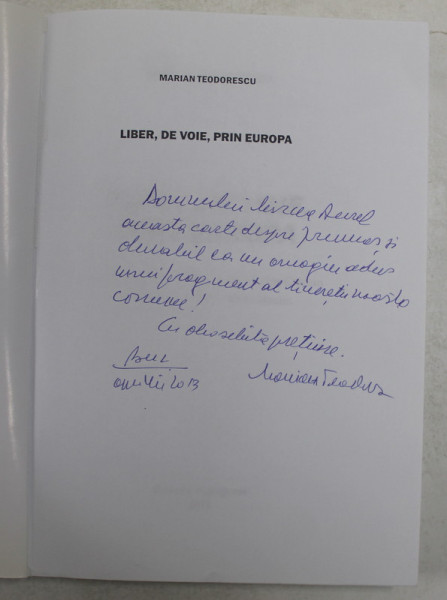 MARIAN TEODORESCU
LIBER, DE VOIE, PRIN EUROPA
Domnului Mircea Aurel
această carte despre frumos și
durabil ca un omagiu adus
unui fragment al tinereții noastre
comune!
Cu deosebită prețuire.
Buc
aprilie 2013 Marian Teodor